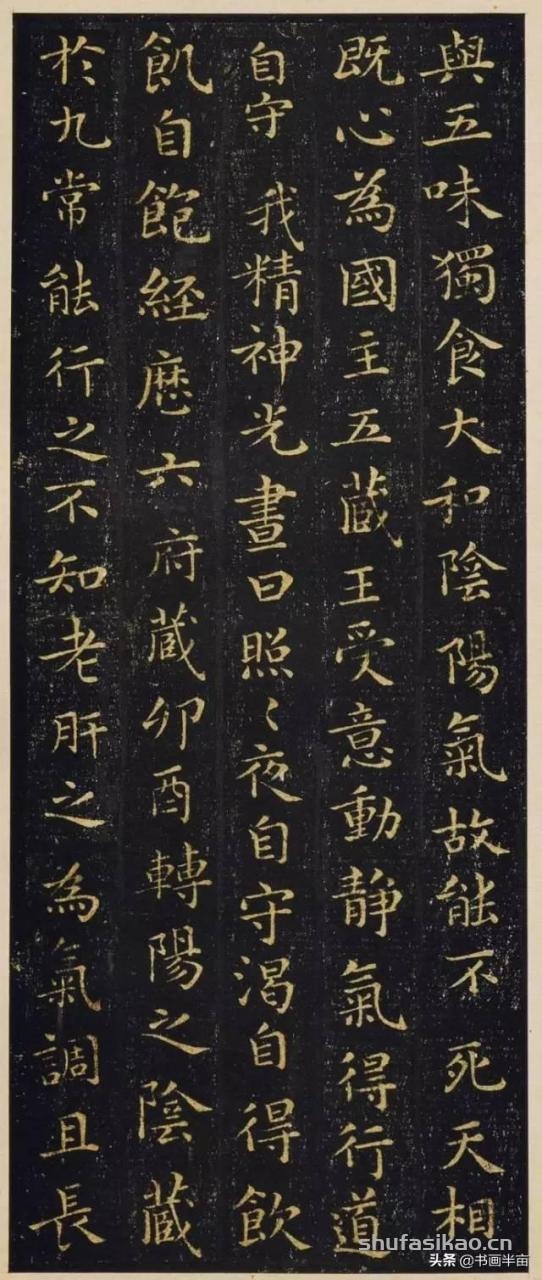 與五味獨食大和陰陽氣故能不死天相
既心為國主五蔵王受意動静氣得行道
自守我精神光晝日照〻夜自守渴自得飲
飢自飽經歷六府蔵卯酉轉陽之陰蔵
於九常能行之不知老肝之為氣調且長
shufasikao.cn
头条@书画半亩